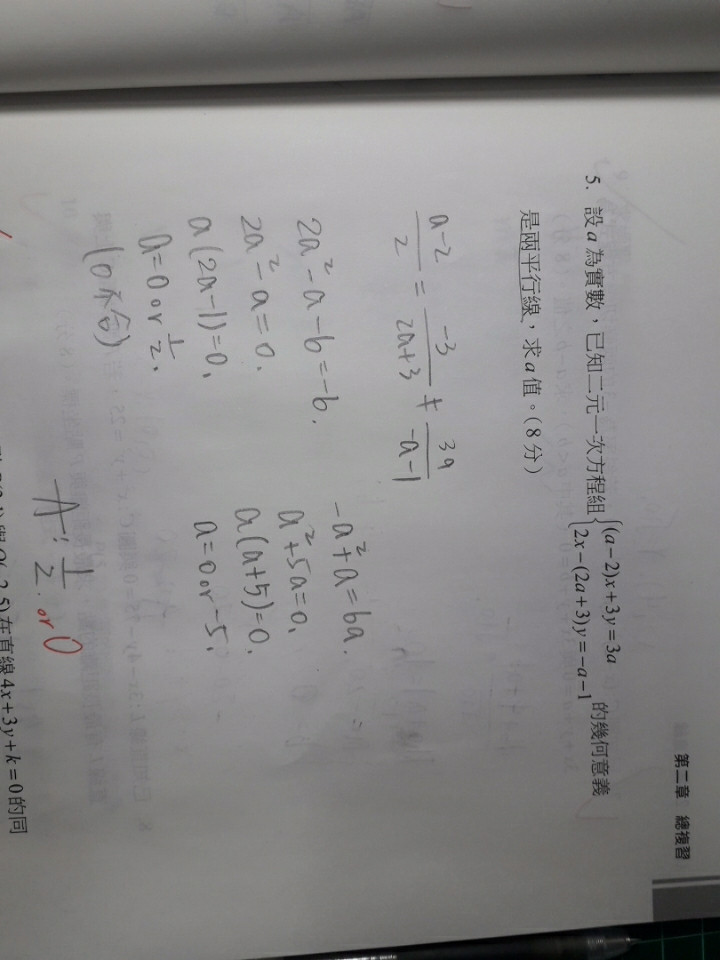 第二章 總複習
5. 設a為實數，已知二元一次方程組{(a-2)x+3y=3a
2x-(2a+3)y=-a-1 的幾何意義
是兩平行線，求a值。(8分)
a-2/2 = -3/2a+3 ≠ 3a/-a-1
2a²-a-6=-6.
2a²-a=0.
a(2a-1)=0,
a=0 or 1/2.
(0不合)
-a²+a=6a.
a²+5a=0,
a(a+5)=0.
a=0 or -5,
A: 1/2. or 0
5)在直線4x+3y+k=0的同